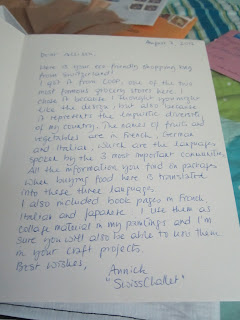 August 7, 
Dear
Here is your eco-friendly shopping bag
from Switzerland!
I got it from Coop, one of the two
most famous grocery stores here. I
chose it because I thought you might
like the design, but also because
it represents the linguistic diversity
of my country. The names of fruits and
vegetables are in French, German
and Italian, which are the languages
spoken by the 3 most important communities.
All the information you find on packages
when buying food here is translated
into these three languages.
I also included book pages in French
Italian and Japanese. I use them as
collage material in my paintings and I'm
sure you will also be able to use them
in your craft projects.
Best wishes,
Annick
"SwissChalet"